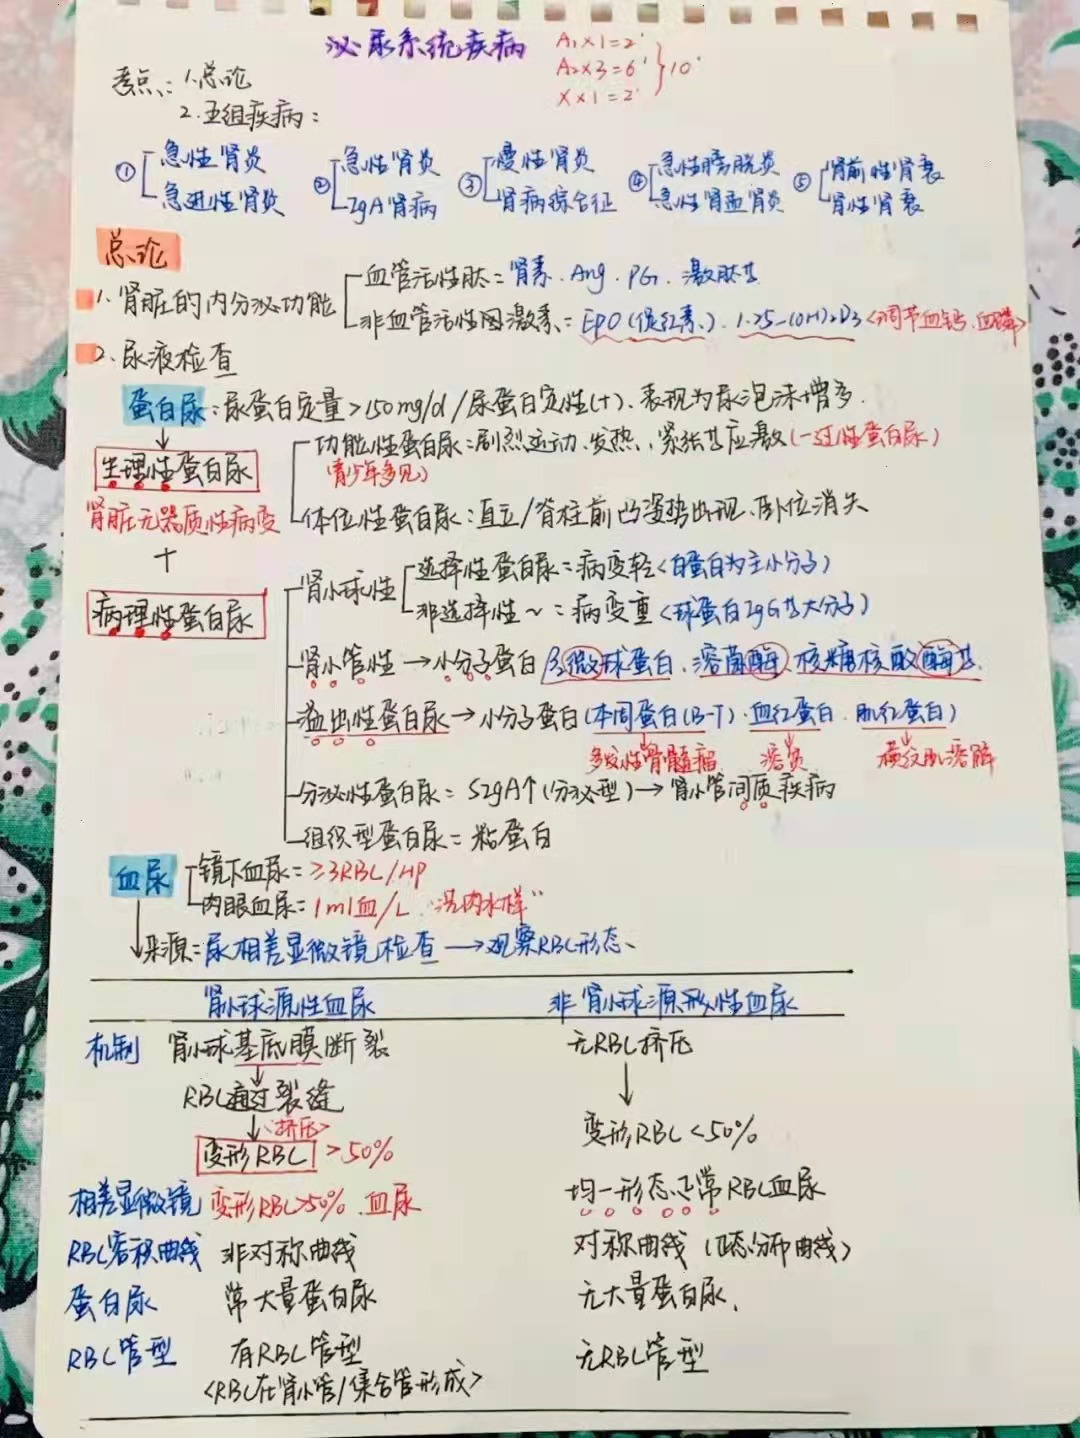 泌尿系统疾病
A₁×1=2'
A₂×3=6' }10'
X×1=2'
考点:1.总论
2.五组疾病:
① 急性肾炎 急进性肾炎
② 急性肾炎 IgA肾病
③ 慢性肾炎 肾病综合征
④ 急性膀胱炎 急性肾盂肾炎
⑤ 肾前性肾衰 肾性肾衰
总论
1.肾脏的内分泌功能
血管活性肽=肾素.Ang.PG.激肽等
非血管活性因激素=EPO(促红素).1.25-(OH)₂D₃<调节血钙.血磷>
2.尿液检查
蛋白尿:尿蛋白定量>150mg/d/尿蛋白定性(+).表现为尿泡沫增多.
生理性蛋白尿
肾脏无器质性病变
功能性蛋白尿:剧烈运动.发热、紧张等应激(一过性蛋白尿)
(青少年多见)
体位性蛋白尿:直立/脊柱前凸姿势出现、卧位消失
+
病理性蛋白尿
肾小球性
选择性蛋白尿=病变轻<白蛋白为主小分子>
非选择性~=病变重<球蛋白IgG等大分子>
肾小管性→小分子蛋白β₂微球蛋白、溶菌酶、核糖核酸酶等.
溢出性蛋白尿→小分子蛋白(本周蛋白(B-J)·血红蛋白.肌红蛋白)
多发性骨髓瘤 溶贫 横纹肌溶解
分泌性蛋白尿=SIgA↑(分泌型)→肾小管间质疾病
组织型蛋白尿=粘蛋白
血尿
镜下血尿=≥3RBC/HP
肉眼血尿=1ml血/L."洗肉水样"
来源=尿相差显微镜检查→观察RBC形态、
肾小球源性血尿 非肾小球源形性血尿
机制 肾小球基底膜断裂 无RBC挤压
↓
RBC通过裂缝
↓<挤压> ↓
变形RBC >50% 变形RBC<50%
相差显微镜 变形RBC>50%.血尿 均一形态正常RBC血尿
RBC容积曲线 非对称曲线 对称曲线(正态分布曲线)
蛋白尿 常大量蛋白尿 无大量蛋白尿.
RBC管型 有RBC管型 无RBC管型
<RBC在肾小管/集合管形成>